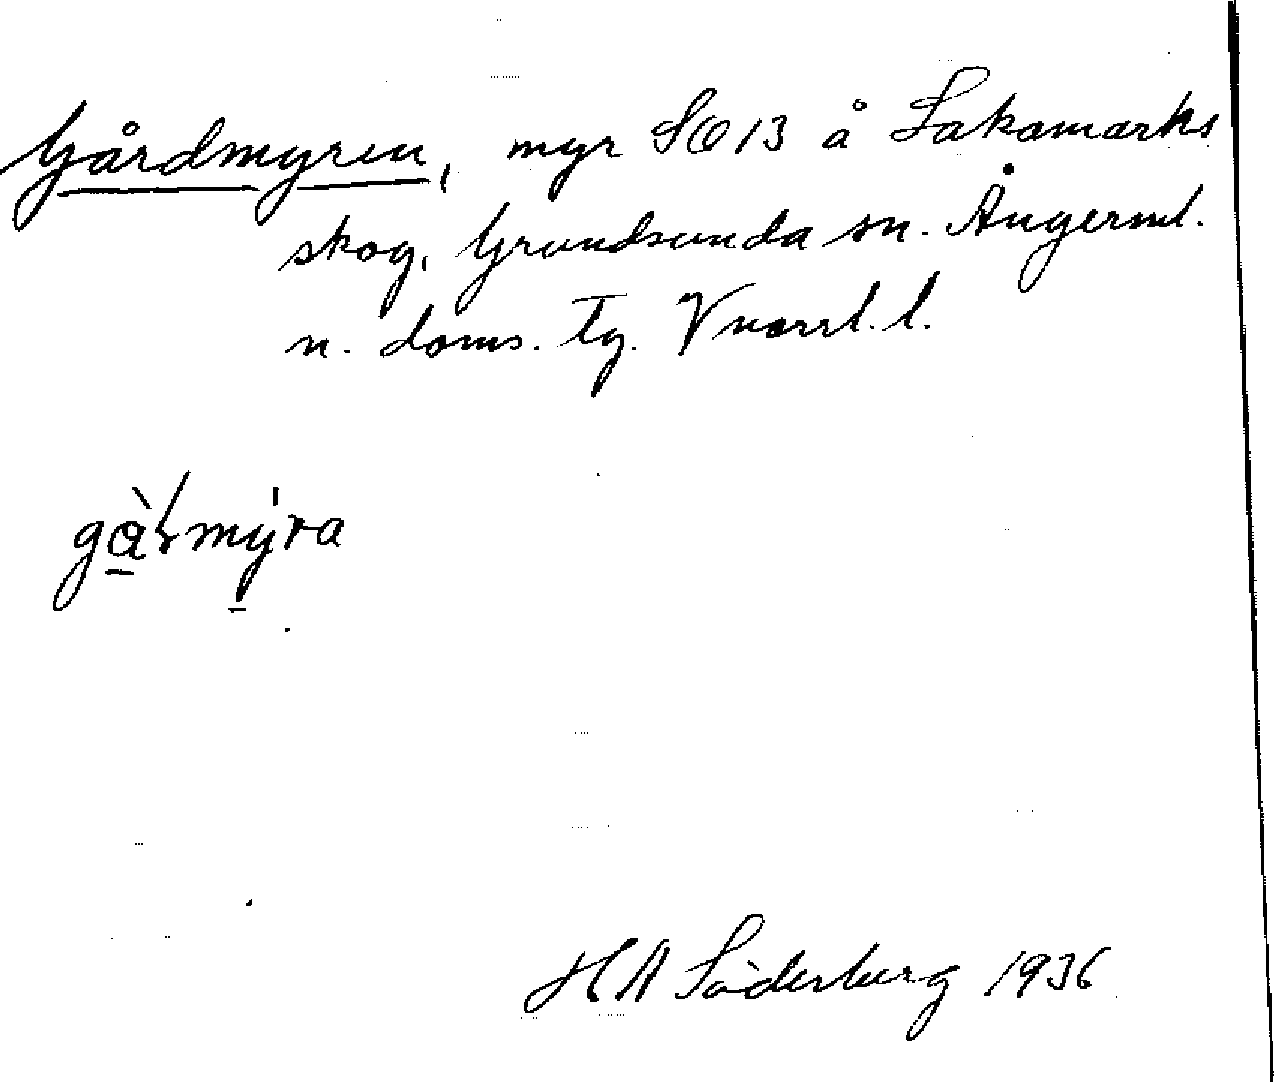 Gårdmyren, myr SO 13 å Sakamarks
skog, Grundsunda sn. Ångerml.
n. doms. tg. Vnorrl. l.
HA Söderberg 1936